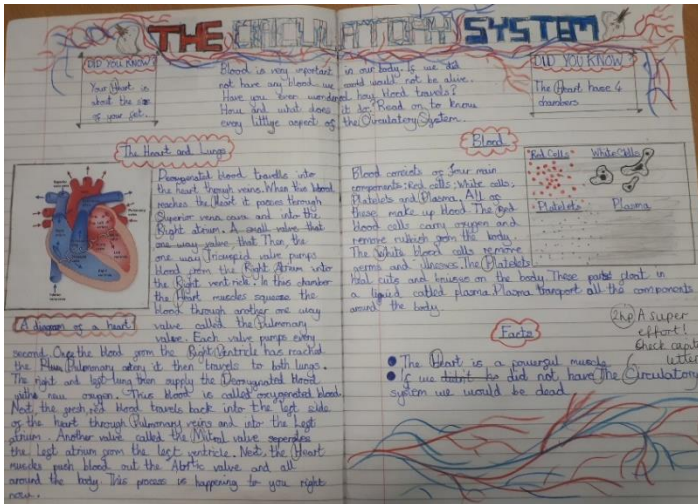 THE CIRCULATORY SYSTEM
DID YOU KNOW?
Your Heart is
about the size
of your fist.
Blood is very important in our body. If we did
not have any blood we would not be alive.
Have you ever wondered how blood travels?
How and what does it be? Read on to know
every little aspect of the Circulatory System.
DID YOU KNOW?
The Heart have 4
chambers
The Heart and Lungs
Deoxygenated blood travells into
the heart though veins. When this blood
reaches the Heart it passes through
Superior vena cava and into the
Right atrium. A small valve that
one way valve, that Then, the
one way Tricuspid valve pumps
blood from the Right Atrium into
the Right ventricle. In this chamber
the Heart muscles squeeze the
blood through another one way
valve called the Pulmonary
valve. Each valve pumps every
A diagram of a heart
second. Once the blood from the Right Ventricle has reached
the Pulmonary artery it then travels to both lungs.
The right and left lung then supply the Deoxygenated blood
with new oxygen. This blood is called oxygenated blood.
Next, the fresh, red blood travels back into the left side
of the heart through Pulmonary veins and into the Left
atrium. Another valve called the Mitral valve seperates
the Left atrium from the left ventricle. Next, the Heart
muscles push blood out the Abrtic valve and all
around the body. This process is happening to you right
now.
Blood
Blood consists of four main
components: Red cells, White cells,
Platelets and Plasma. All of
these make up blood. The Red
blood cells carry oxygen and
remove rubbish from the body.
The White blood cells remove
germs and illnesses. The Platelets
heal cuts and bruises on the body. These parts float in
a liquid called plasma. Plasma transport all the components
around the body.
Red Cells
White Cells
Platelets
Plasma
Facts
The Heart is a powerful muscle
If we didn't ha did not have The Circulatory
system we would be dead.
2hp A super
effort!
Check capital
letters